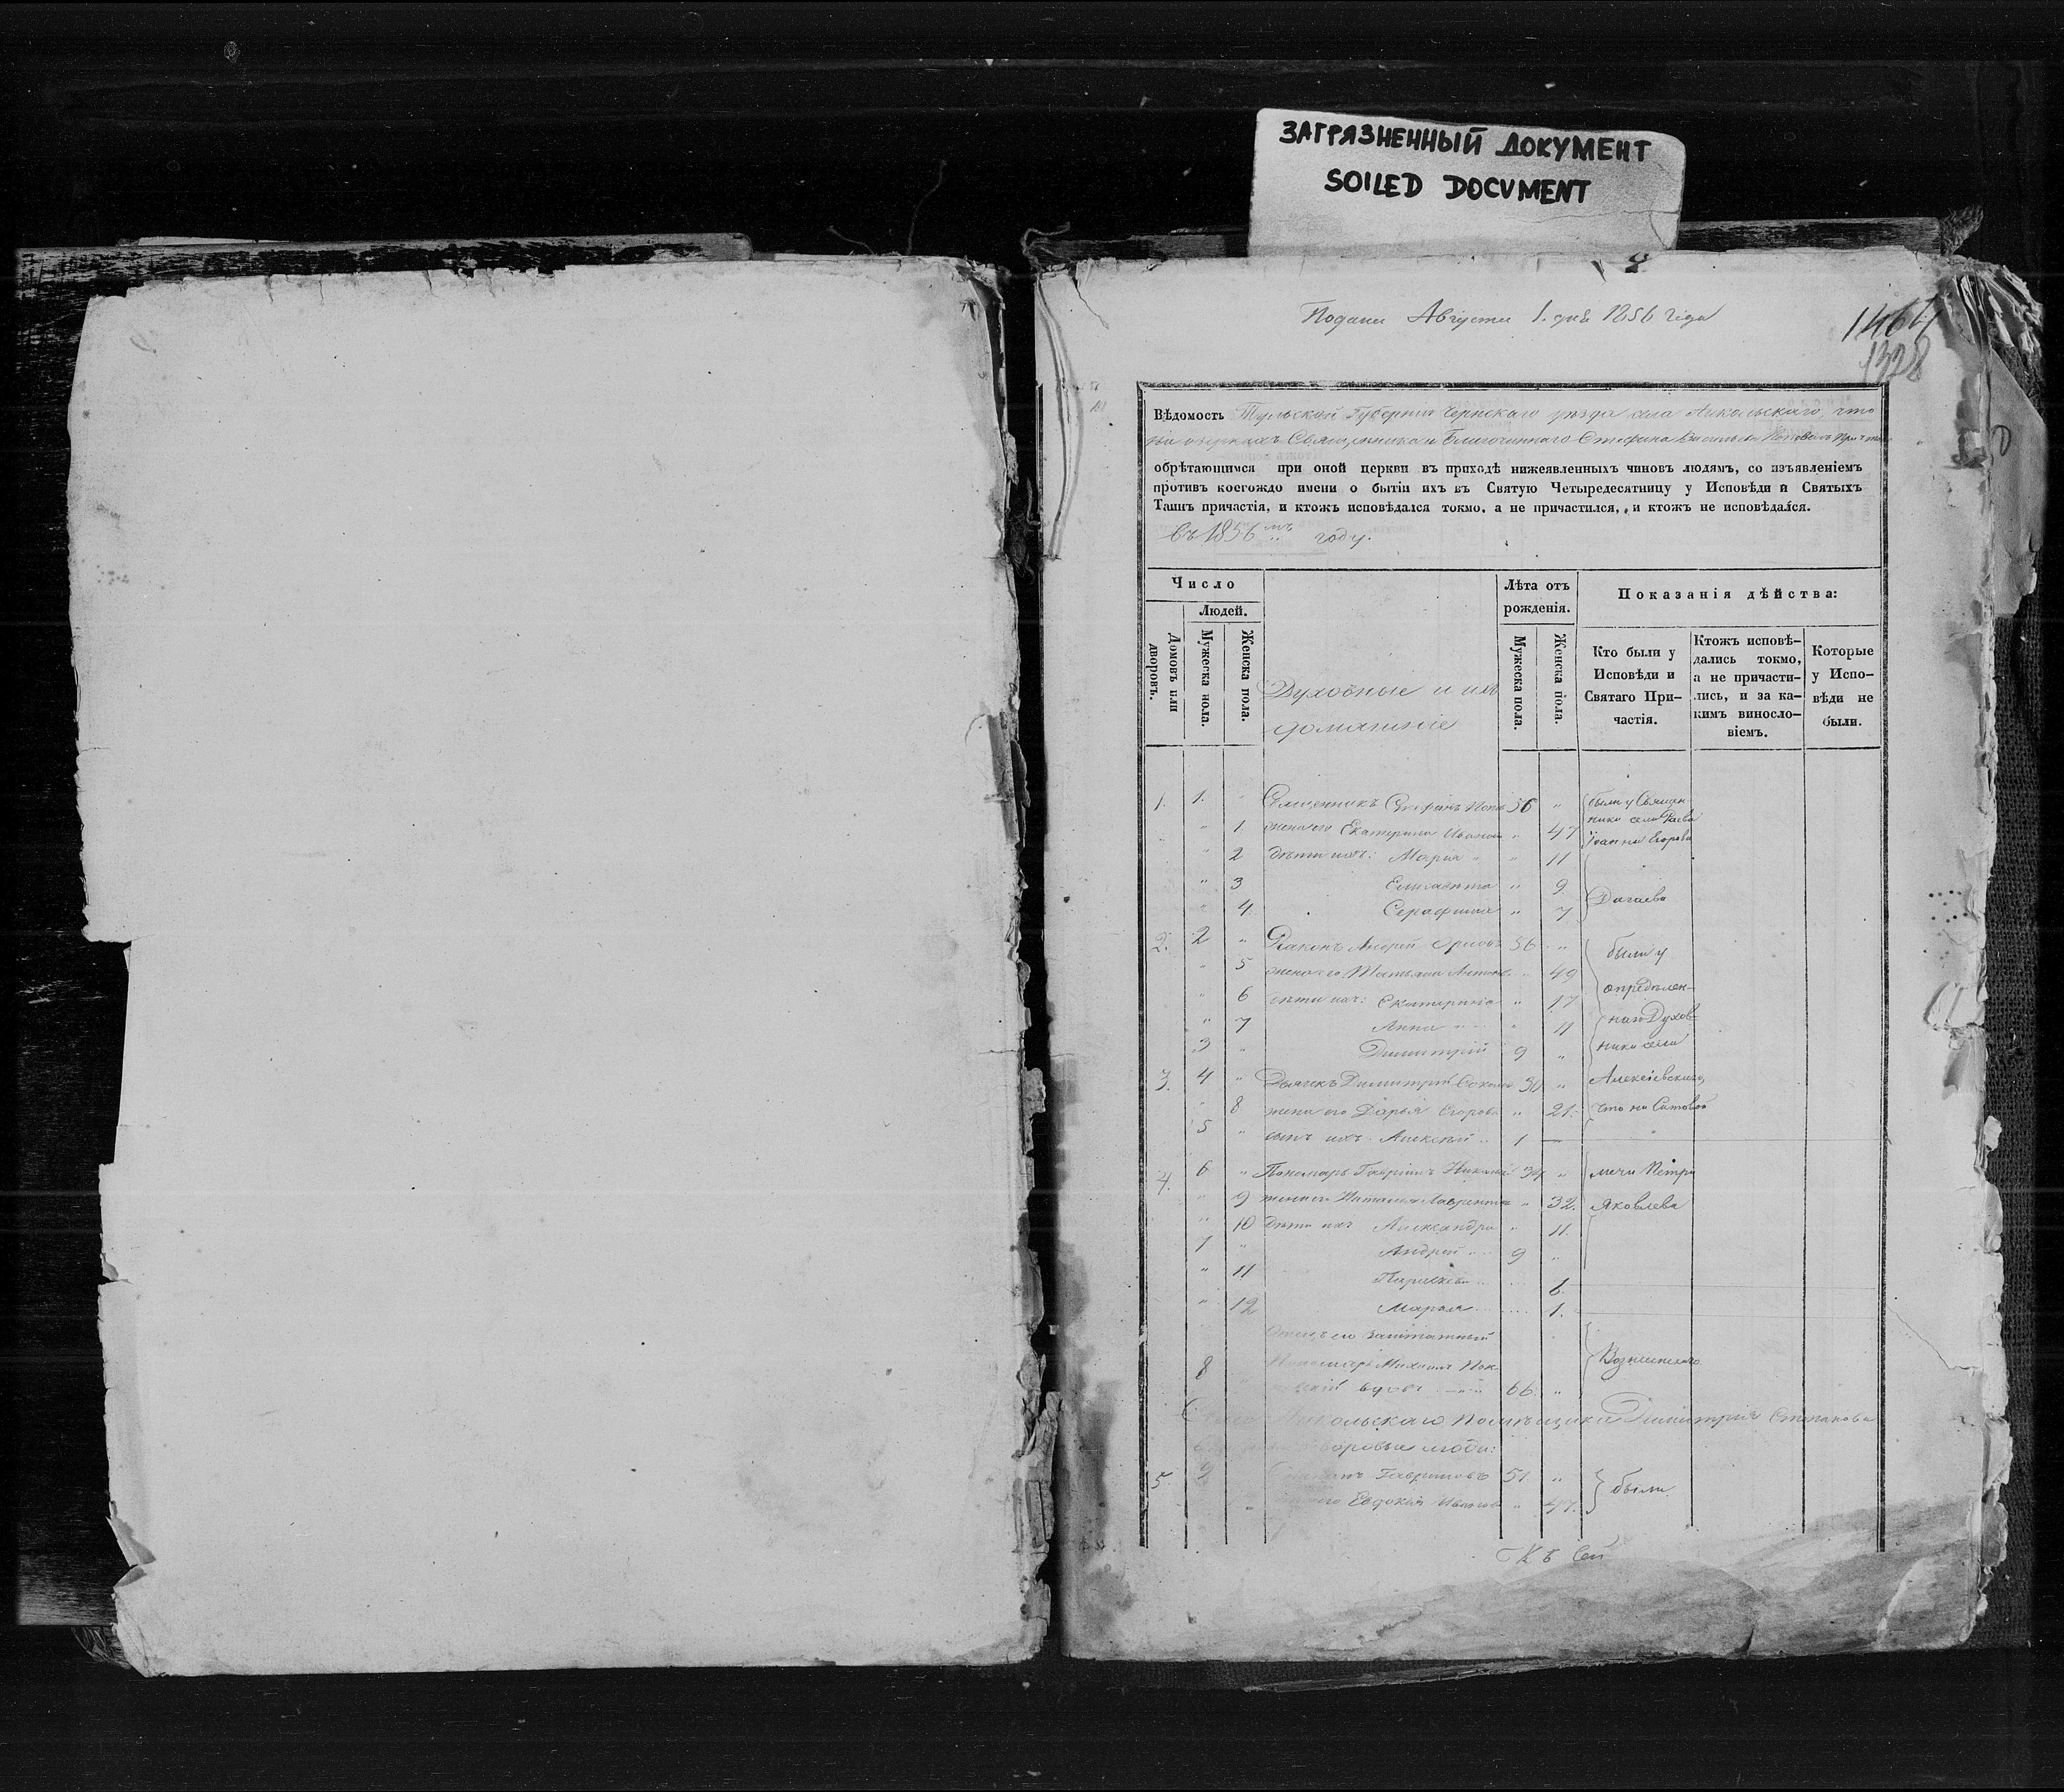 ЗАГРЯЗНЕННЫЙ ДОКУМЕНТ
SOILED DOCUMENT
Подана Августа 1. дня 1856 года
1328
Вѣдомость Тульской Губернии Чернскаго уѣзда села Никольскаго, что
на Священника и Благочиннаго Стефана Васильева Попова
обрѣтающимся при оной церкви въ приходѣ нижеявленныхъ чиновъ людямъ, со изъявленіемъ
противъ коегождо имени о бытіи ихъ въ Святую Четыредесятницу у Исповѣди и Святыхъ
Таинъ причастія, и ктожъ исповѣдался токмо, а не причастился, и ктожъ не исповѣдался.
въ 1856мъ году.
Число
Людей.
Домовъ или дворовъ.
Мужеска пола.
Женска пола.
Духовные и ихъ
домашніе
Лѣта отъ
рожденія.
Мужеска пола.
Женска пола.
Показанія дѣйства:
Кто были у
Исповѣди и
Святаго При-
частія.
Ктожъ исповѣ-
дались токмо,
а не причасти-
лись, и за ка-
кимъ винносло-
віемъ.
Которые
у Испо-
вѣди не
были.
1. 1. " Священникъ Стефанъ Попов 56 " были у Священ
" 1 жена его Екатерина Иванова " 47 ника села
" 2 дѣти ихъ: Марія " " 11 Іоанна Егорова
" 3 Елисавета " 9
" 4 Серафима " 7
2. 2 " Діаконъ Андрей Орловъ 56 " были у
" 5 жена его Татьяна Антонов " 49
" 6 дѣти ихъ: Екатерина " 17 опредѣлен-
" 7 Анна " 11 наго Духов-
3 " Димитрій 9 " ника села
3. 4 " Дьячекъ Димитрій Соколов 30 " Алексіевскаго,
" 8 жена его Дарья Егорова " 21. что на
5 " сынъ ихъ Алексѣй 1 —
4. 6 " Пономарь Гавріилъ 34 " мечи Петра
" 9 жена его Наталья Лаврентьева " 32. Яковлева
" 10 дѣти ихъ Александра " 11.
7 " Андрей 9 "
" 11 Параскева 6.
" 12 Марья 1.
Отецъ его заштатный
8 Пономарь Михаилъ
вдовъ 66. "
Села Никольскаго помѣщика Димитрія Степанова
дворовые люди:
5 9 Гавриловъ 51. " были
жена его Евдокія Иванова " 47.
Къ сей